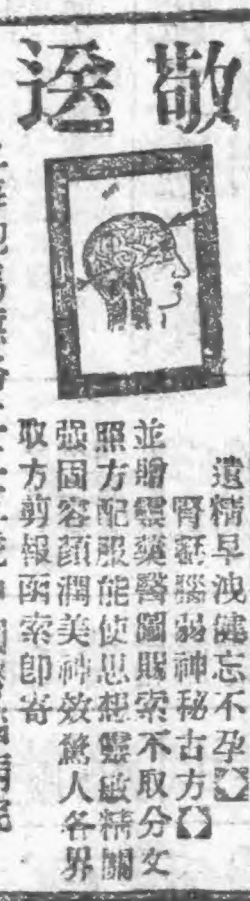 敬送
遺精早洩健忘不孕
腎虧腦弱神秘古方
並贈靈藥醫圖賜索不取分文
照方配服能使思想靈敏精關
强固容顏潤美神效驚人各界
取方剪報函索卽寄